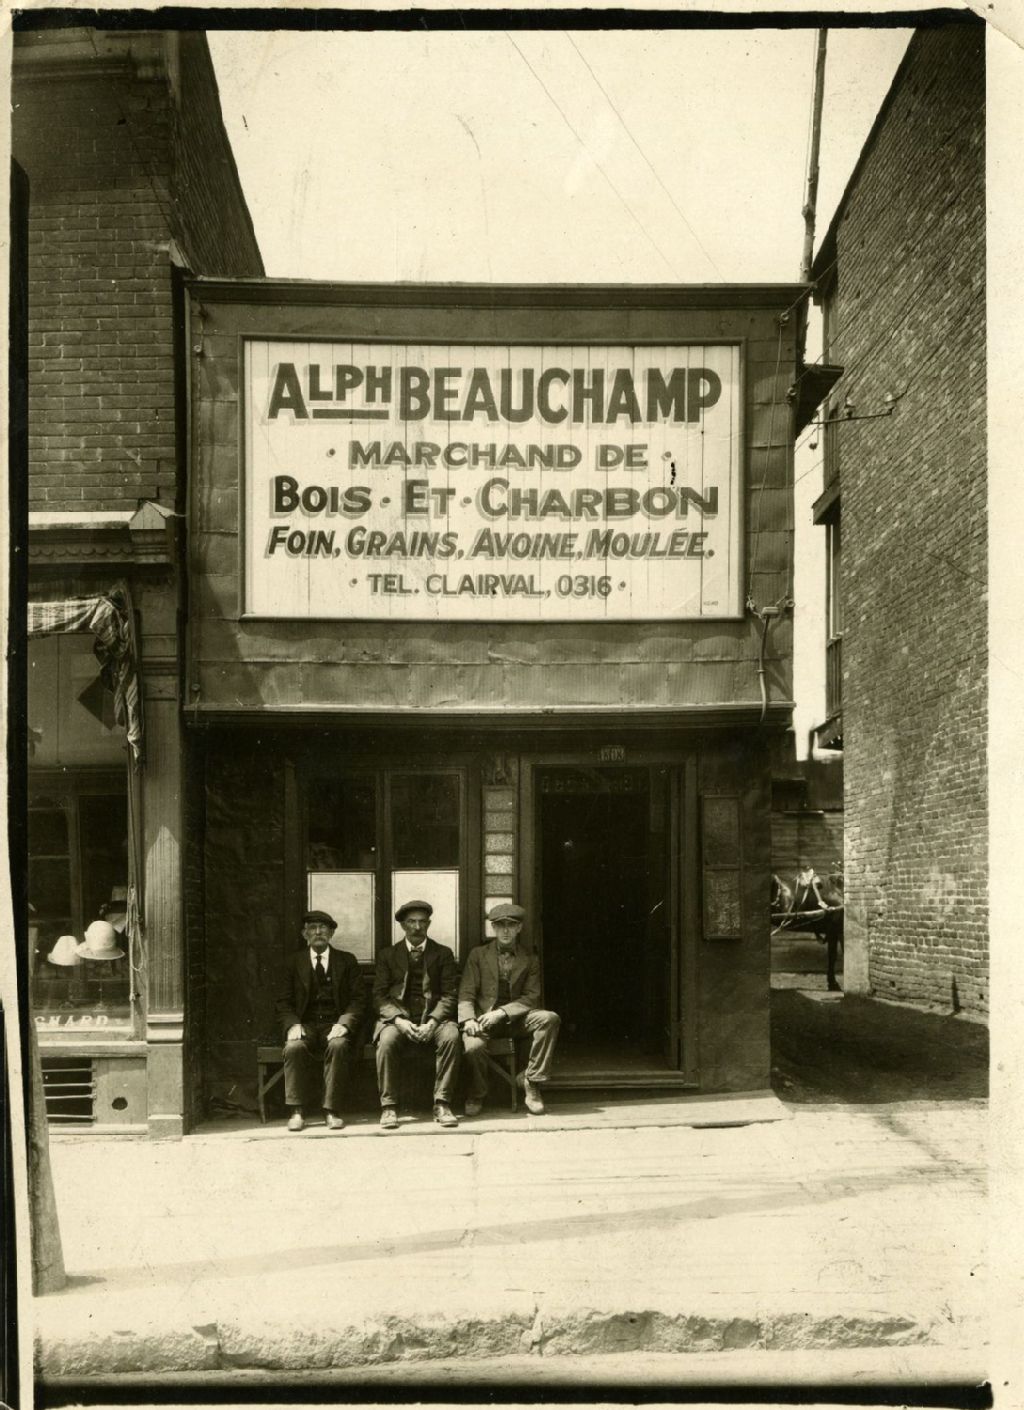 ALPH BEAUCHAMP
· MARCHAND DE ·
BOIS · ET · CHARBON
FOIN, GRAINS, AVOINE, MOULÉE.
· TEL. CLAIRVAL, 0316 ·